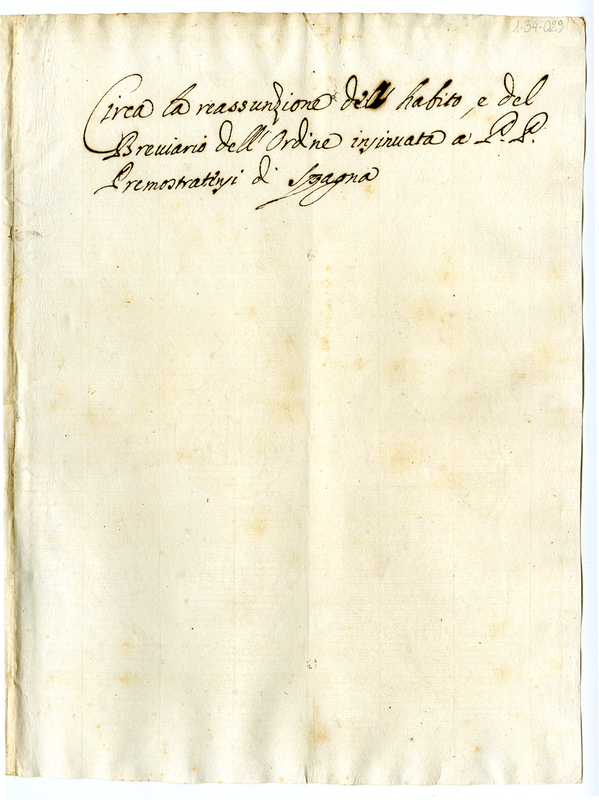 1-34-029
Circa la reassunzione dell' habito, e del
Breviario dell' Ordine insinuata a P. P.
Premostratensi di Spagna